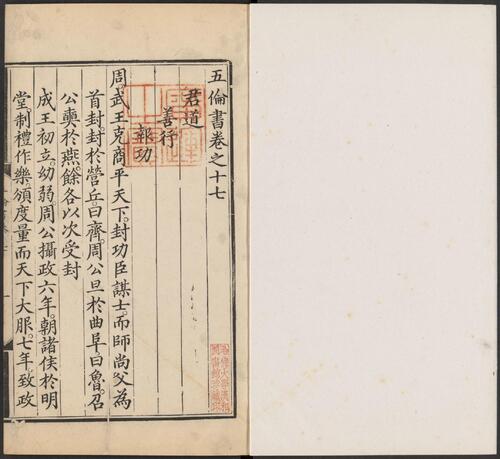 五倫書卷之十七
君道
善行
報功
周武王克商平天下封功臣謀士而師尚父為
首封封於營丘曰齊周公旦於曲阜曰魯召
公奭於燕餘各以次受封
成王初立幼弱周公攝政六年朝諸侯於明
堂制禮作樂頒度量而天下大服七年致政